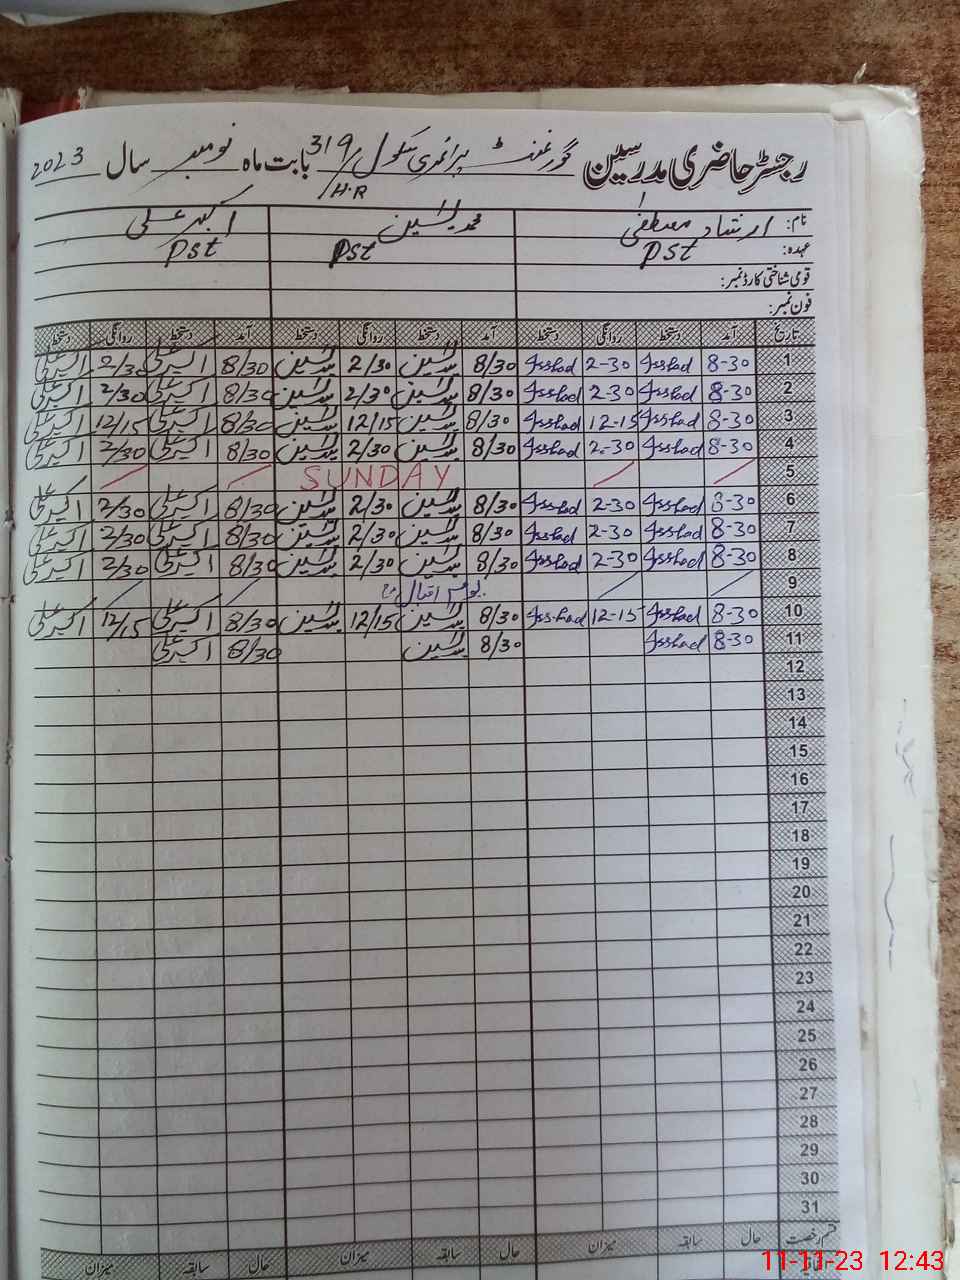 رجسٹر حاضری مدرسین گورنمنٹ پرائمری سکول 319/H.R بابت ماہ نومبر سال 2023
نام: ارشاد مصطفیٰ محمد یٰسین اکبر علی
عہدہ: PST Pst Pst
قومی شناختی کارڈ نمبر:
فون نمبر:
تاریخ آمد دستخط روانگی دستخط آمد دستخط روانگی دستخط آمد دستخط روانگی دستخط
1 8-30 Irshad 2-30 Irshad 8/30 یٰسین 2/30 یٰسین 8/30 اکبر علی 2/30 اکبر علی
2 8-30 Irshad 2-30 Irshad 8/30 یٰسین 2/30 یٰسین 8/30 اکبر علی 2/30 اکبر علی
3 8-30 Irshad 12-15 Irshad 8/30 یٰسین 12/15 یٰسین 8/30 اکبر علی 12/15 اکبر علی
4 8-30 Irshad 2-30 Irshad 8/30 یٰسین 2/30 یٰسین 8/30 اکبر علی 2/30 اکبر علی
5 SUNDAY
6 8-30 Irshad 2-30 Irshad 8/30 یٰسین 2/30 یٰسین 8/30 اکبر علی 2/30 اکبر علی
7 8-30 Irshad 2-30 Irshad 8/30 یٰسین 2/30 یٰسین 8/30 اکبر علی 2/30 اکبر علی
8 8-30 Irshad 2-30 Irshad 8/30 یٰسین 2/30 یٰسین 8/30 اکبر علی 2/30 اکبر علی
9 یوم اقبال
10 8-30 Irshad 12-15 Irshad 8/30 یٰسین 12/15 یٰسین 8/30 اکبر علی 12/15 اکبر علی
11 8-30 Irshad 8/30 یٰسین 8/30 اکبر علی
12
13
14
15
16
17
18
19
20
21
22
23
24
25
26
27
28
29
30
31
قسم رخصت حال سابقہ میزان حال سابقہ میزان حال سابقہ میزان
11-11-23 12:43